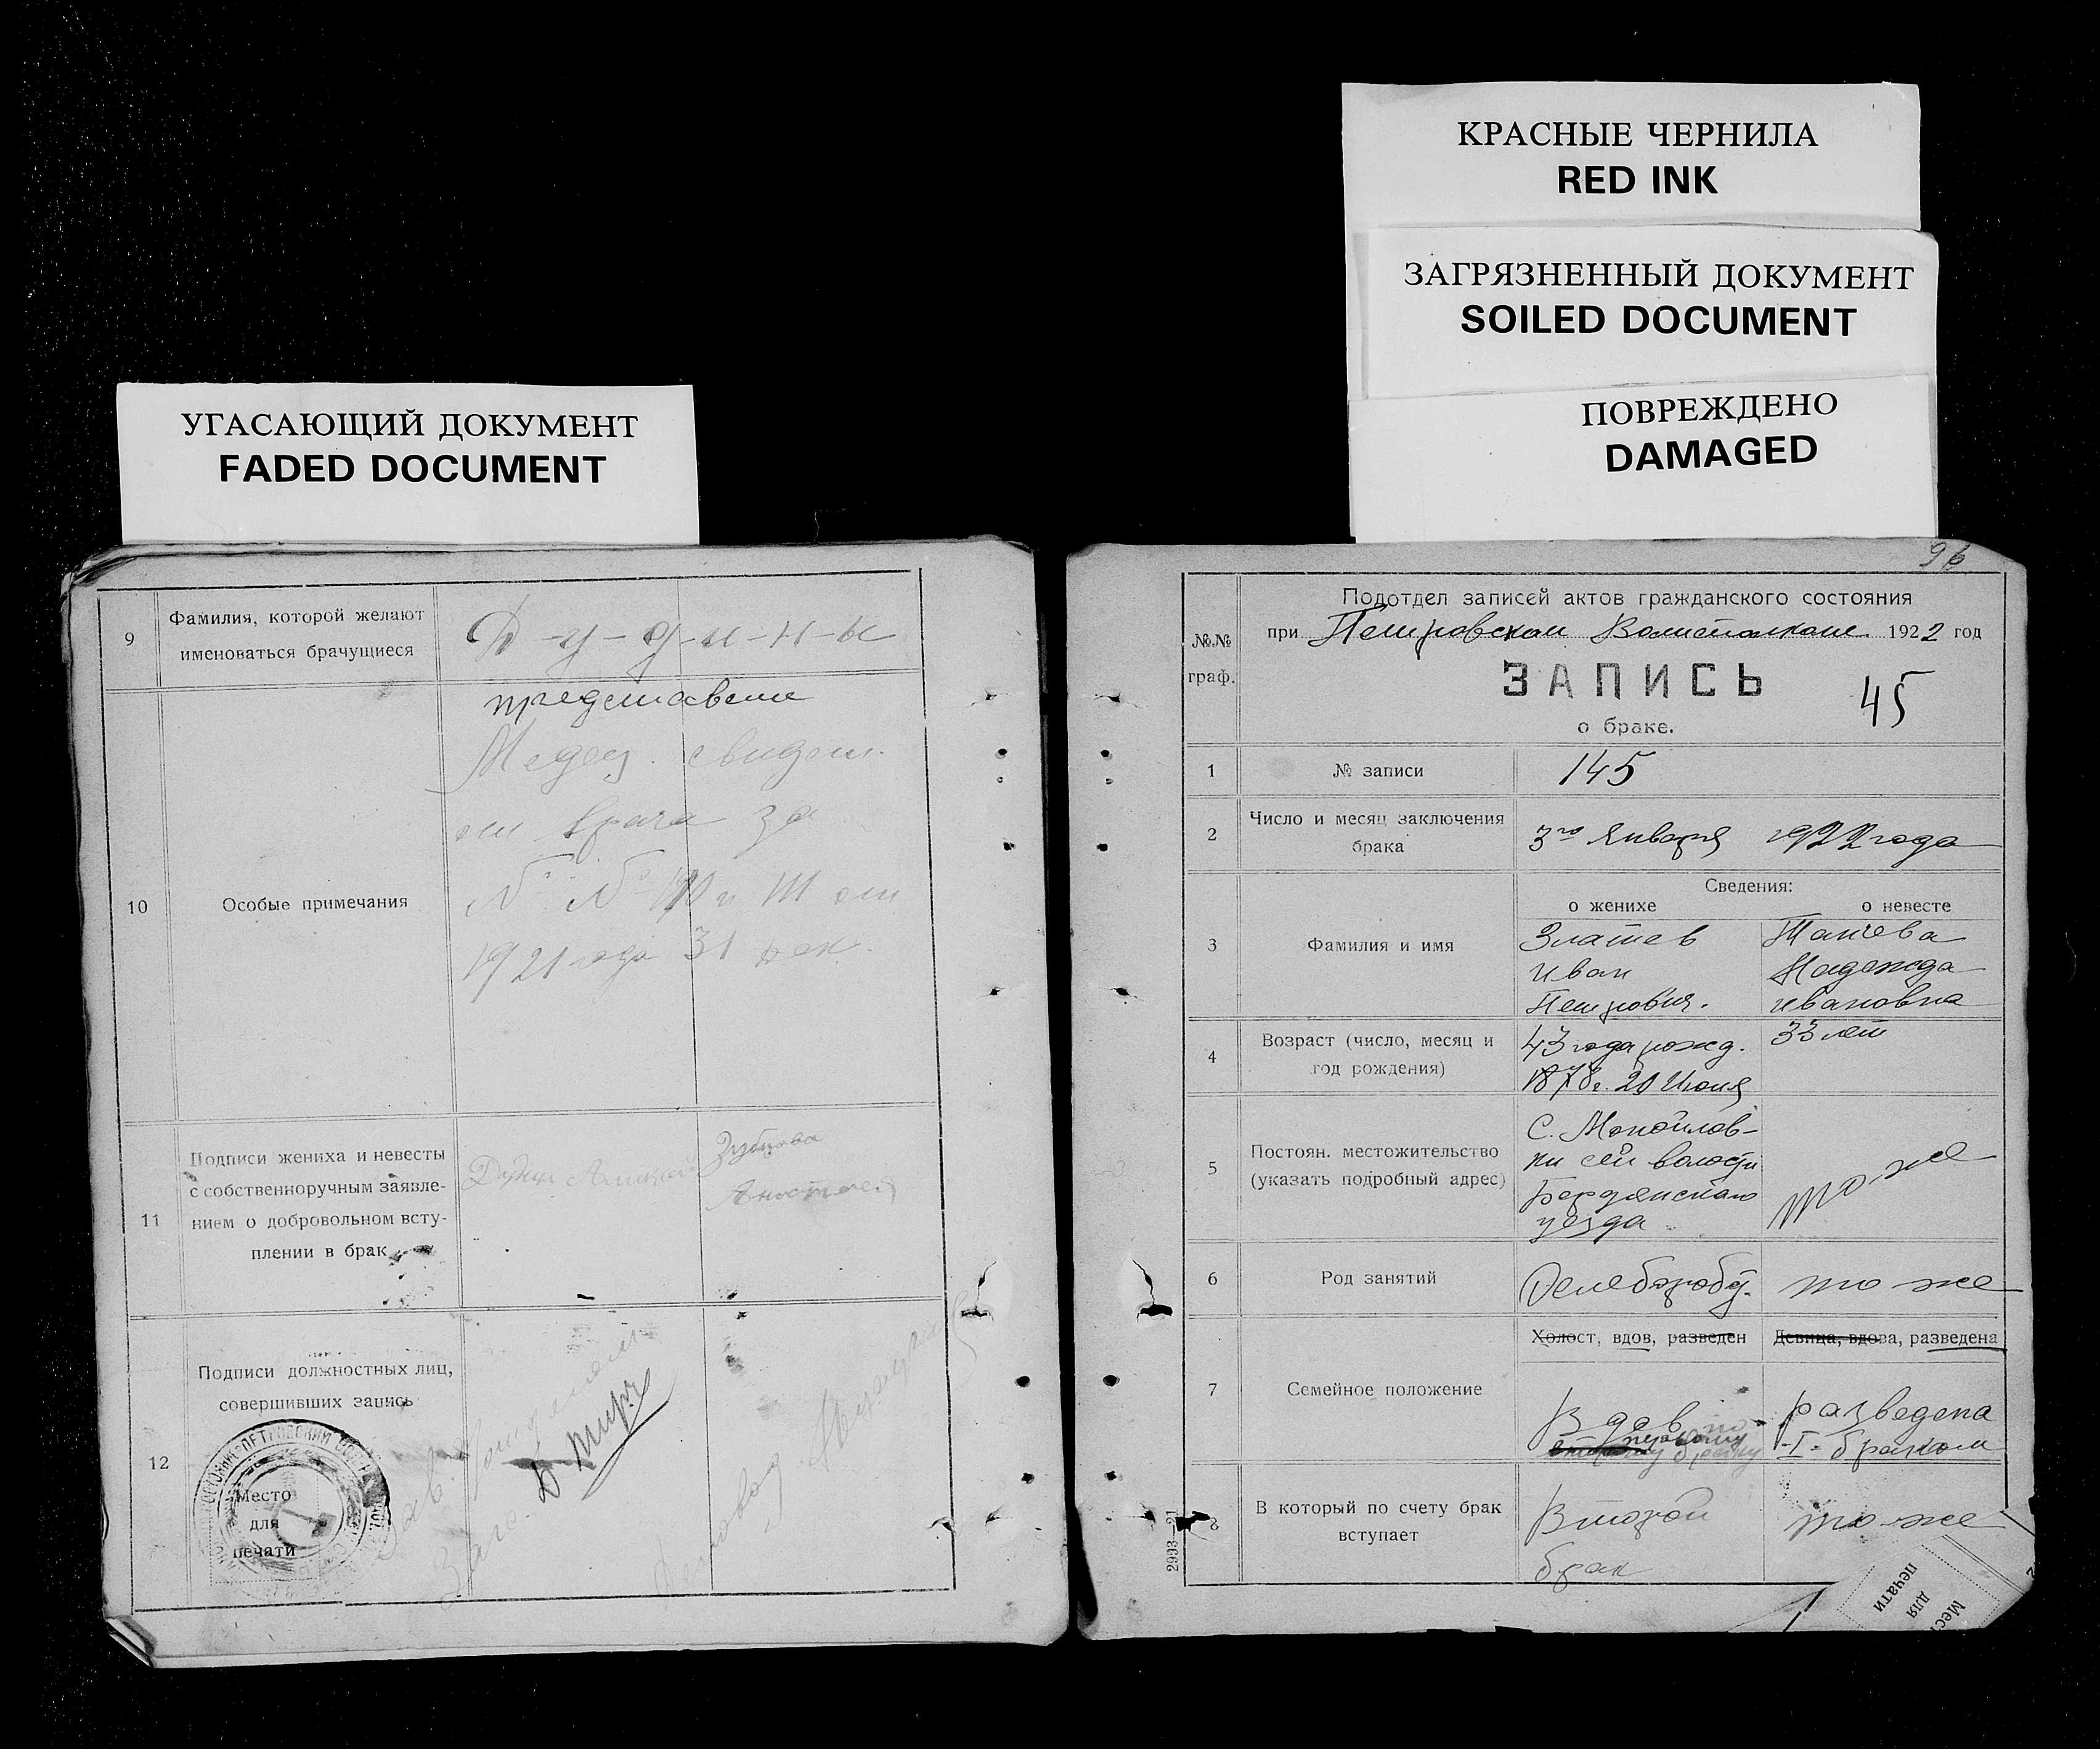 КРАСНЫЕ ЧЕРНИЛА
RED INK
ЗАГРЯЗНЕННЫЙ ДОКУМЕНТ
SOILED DOCUMENT
ПОВРЕЖДЕНО
DAMAGED
УГАСАЮЩИЙ ДОКУМЕНТ
FADED DOCUMENT
9
Фамилия, которой желают
именоваться брачущиеся
Д-у-д-и-н-ы
10
Особые примечания
представлены
Медец. свидет.
от врача за
1921 года 31 дек.
11
Подписи жениха и невесты
с собственноручным заявле-
нием о добровольном всту-
плении в брак
Зубкова
12
Подписи должностных лиц,
совершивших запись
Место
для
печати
96
№№
граф.
Подотдел записей актов гражданского состояния
при Петровском Волисполкоме 1922 год
ЗАПИСЬ
45
о браке.
1
№ записи
145
2
Число и месяц заключения
брака
3го Января 1922 года
Сведения:
о женихе
о невесте
3
Фамилия и имя
Златев
Иван
Петрович.
Танчева
Надежда
Ивановна
4
Возраст (число, месяц и
год рождения)
43 года рожд.
1878г. 20 Июня
33 лет
5
Постоян. местожительство
(указать подробный адрес)
С. Манойлов-
ки сей волости
Бердянского
уезда
то-же
6
Род занятий
Хлебороб
то же
7
Семейное положение
Холост, вдов, разведен
Девица, вдова, разведена
Вдов по
первому
браку
разведена
I- браком
8
В который по счету брак
вступает
Второй
брак
то-же
2993—21
Мес
для
печати